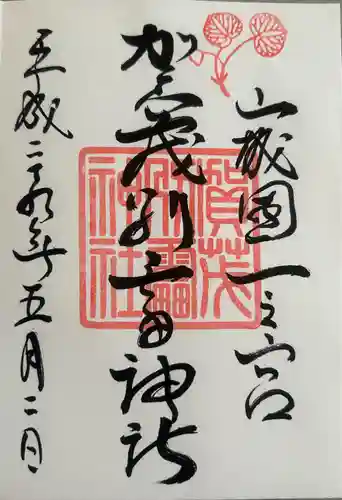 山城國一之宮
加茂別雷神社
賀茂別雷神社
平成二十九年五月二日